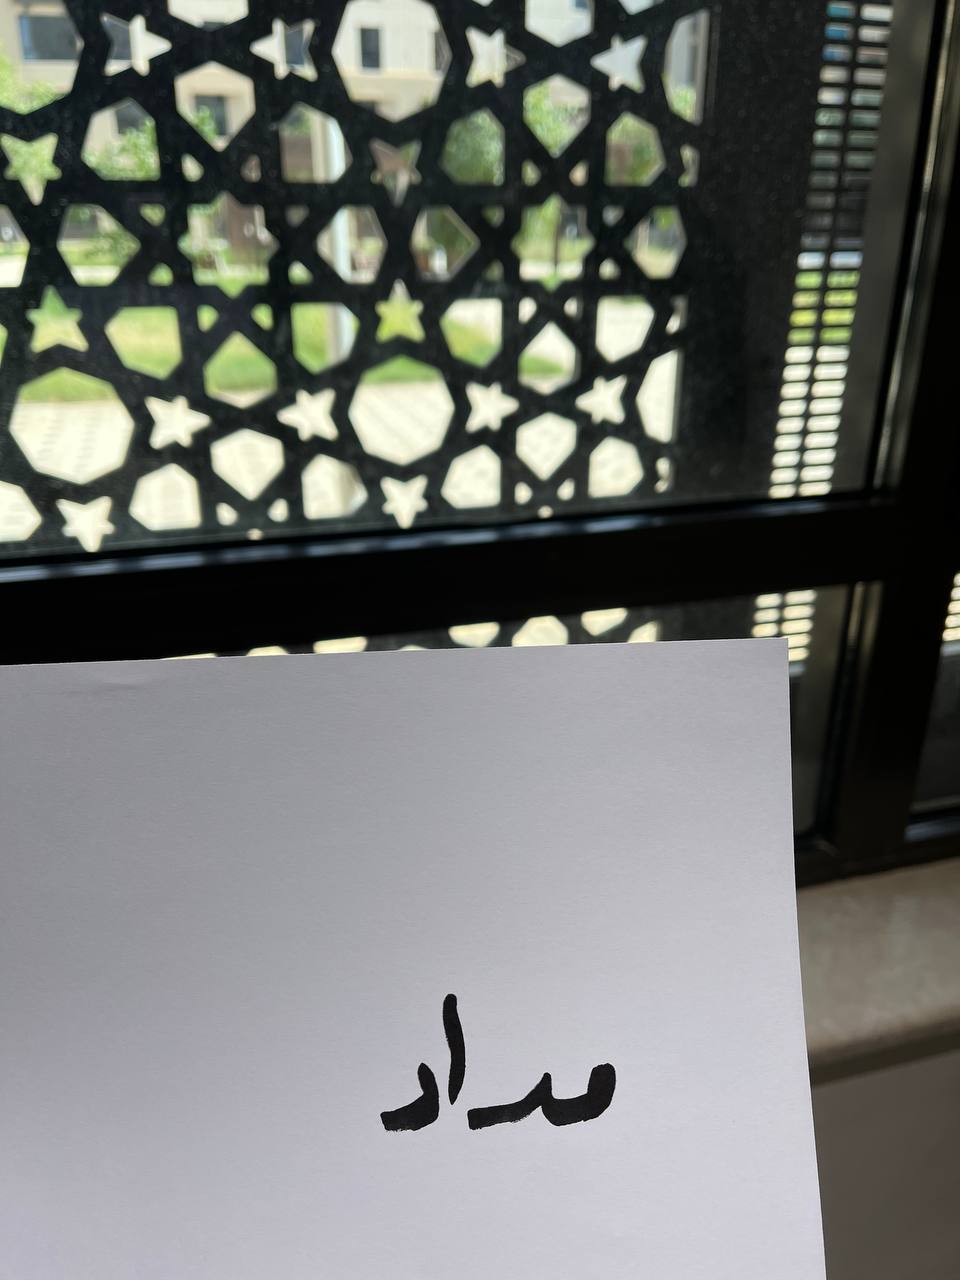 مداد